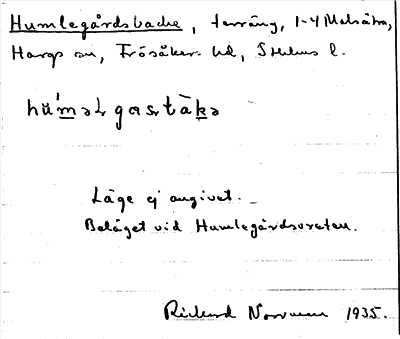 Humlegårdsbacke, terräng, 1-4 Malsätra,
Hargs sn, Frösåkers hd, Sthlms l.
Läge ej angivet.
Beläget vid Humlegårdsvreten.
Rickard 1935.